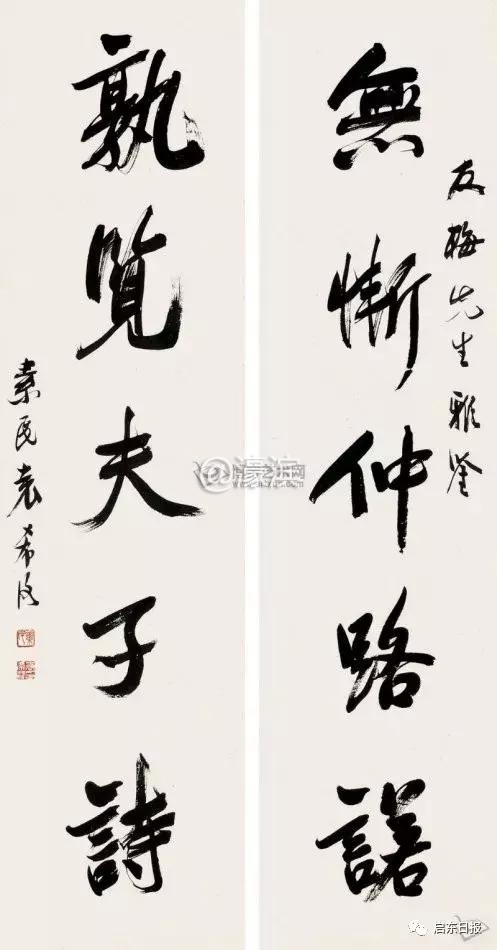 友梅先生雅鉴
無慚仲路諾
孰覽夫子詩
素民袁希洛
@濠滨
启东日报